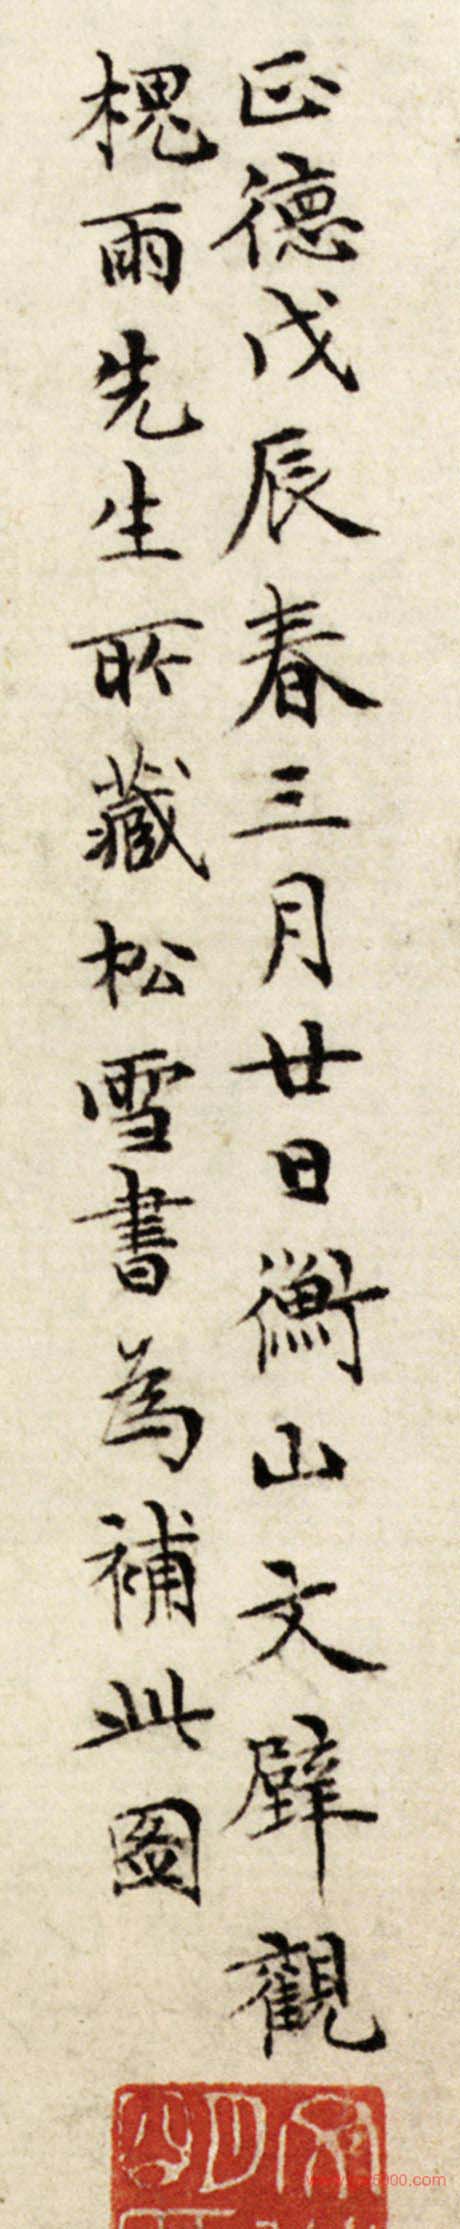 正德戊辰春三月廿日衡山文壁觀
槐雨先生所藏松雪書為補此圖